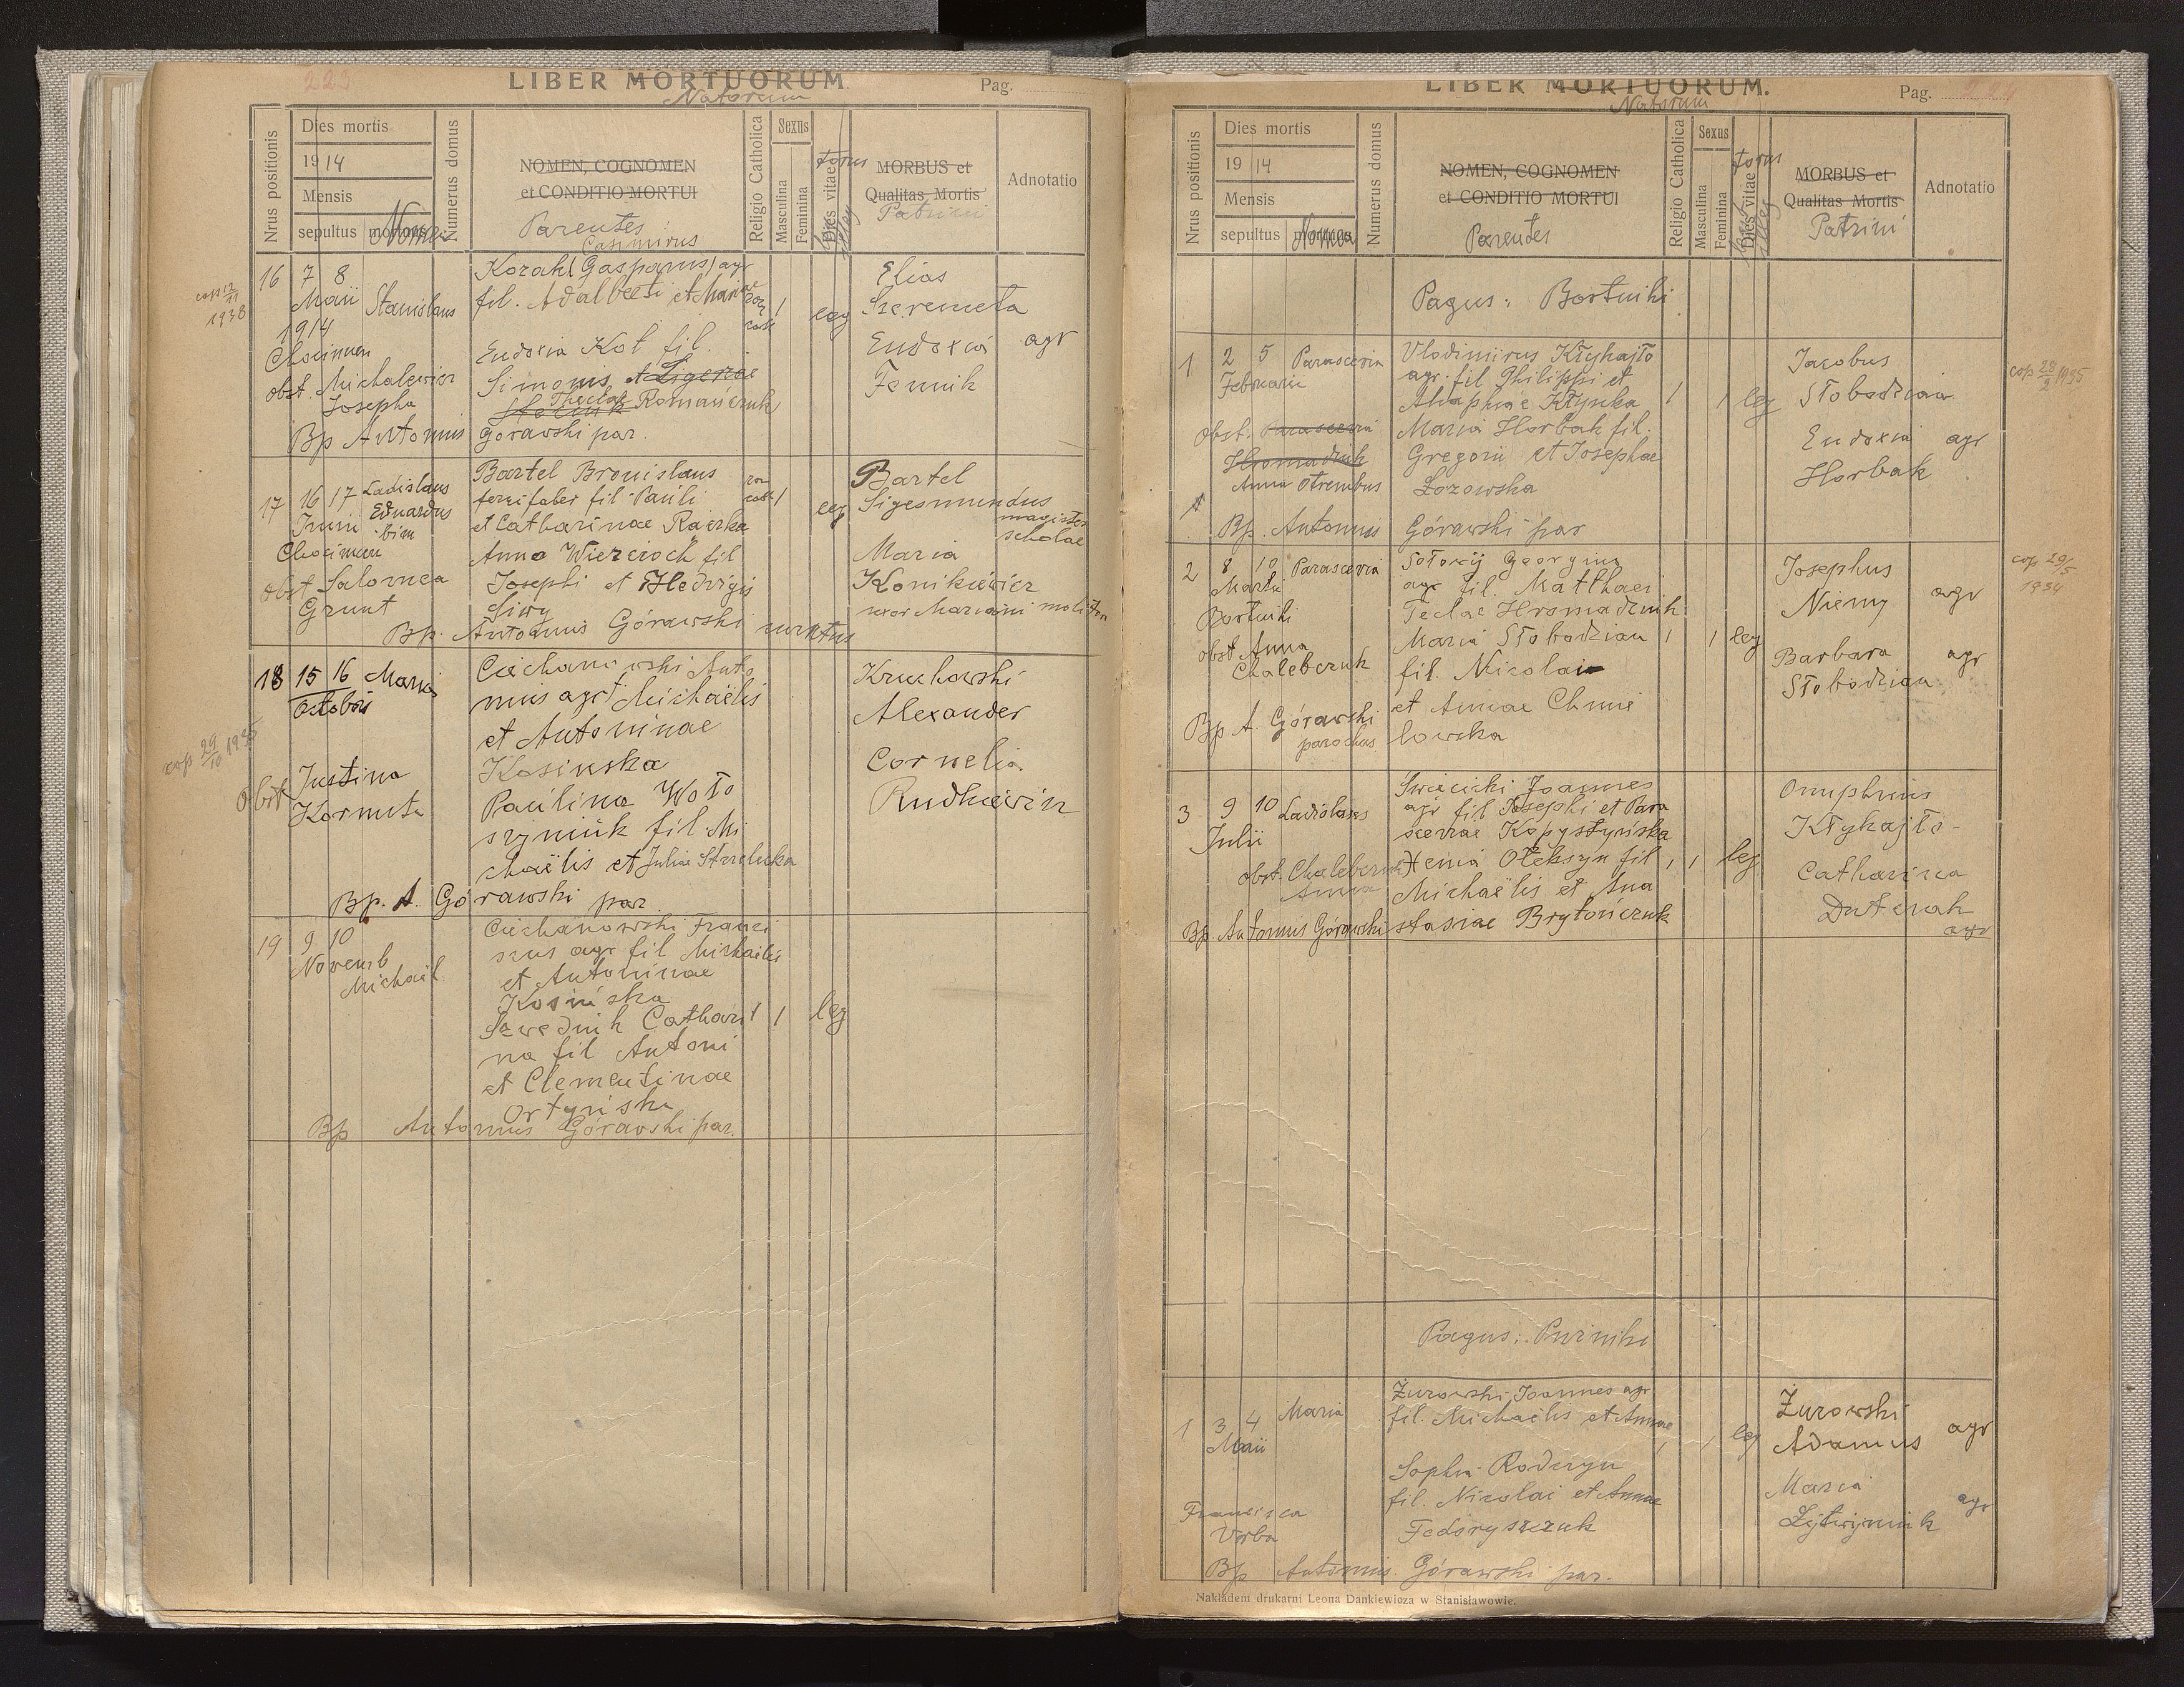 223
LIBER MORTUORUM
Natorum
Pag.
Nrus positionis
Dies mortis
1914
Mensis
sepultus
Nomen
Numerus domus
NOMEN, COGNOMEN
et CONDITIO MORTUI
Parentes
Religio Catholica
Sexus
Masculina
Feminina
Dies vitae
torus
MORBUS et
Qualitas Mortis
Patrini
Adnotatio
cop 12/11
1938
16 7 8
Maii
1914
Chocimierz
obst. Michalewicz
Josepha
Stanislaus
Casimirus
Kozak (Gasparus) agr
fil. Adalberti et Mariae
Eudoxia Kot fil.
Simonis et
Theclae Romanczuk
Bp Antonius Górawski par.
1
leg
Elias
Szeremeta
Eudoxia agr
Fennik
17 16 17 Ladislaus
Eduardus
Junii bim
obst Salomea
Grunt
Bartel Bronislaus
ferri faber fil Pauli
et Catharinae Raczka
Anna Wiercioch fil
Josephi et Hedvigis
Siwy
Bp. Antonius Górawski
1
leg
Bartel
Sigesmundus
magister
scholae
Maria
Konikiewicz
uxor Mariani
18 15 16 Maria
Octobris
cop 29/10 1935
obst Justina
Kormuta
Ciechanowski Anto
nius agr f Michaëlis
et Antoninae
Kosinska
Paulina Woło
szyniuk fil Mi
chaëlis et Juliae Strzelecka
Bp. A. Górawski par
Kruchowski
Alexander
Cornelia
Rudkiewicz
19 9 10
Novemb
Michaël
Ciechanowski Franci
scus agr fil Michaëlis
et Antoninae
Kosińska
Szwediuk Cathari
na fil Antoni
et Clementinae
Ortyńska
1 1 leg
Bp Antonius Górawski par.
LIBER MORTUORUM.
Natorum
Pag. 224
Nrus positionis
Dies mortis
1914
Mensis
sepultus
Nomen
Numerus domus
NOMEN, COGNOMEN
et CONDITIO MORTUI
Parentes
Religio Catholica
Sexus
Masculina
Feminina
Dies vitae
torus
MORBUS et
Qualitas Mortis
Patrini
Adnotatio
Pagus: Bortniki
1 2 5 Parascevia
Februarii
obst. Parascevia
Hromadiuk
Anna Otrembus
Vlodimirus Kłyhajło
agr. fil Philippi et
Kłyska
Maria Horbak fil.
Gregorii et Josephae
Łozowska
Bp. Antonius Górawski par
1 1 leg
Jacobus
Słobodzian
Eudoxia agr
Horbak
cop 28/2 1935
2 8 10 Parascevia
Martii
Bortniki
obst Anna
Chaleberuk
Sołowij Georgius
agr fil. Matthaei
Teclae Hromadiuk
Maria Słobodzian
fil. Nicolai
et Annae Chmie
lowska
Bp A. Górawski
parochus
1 1 leg
Josephus
Niemy agr
Barbara agr
Słobodzian
cop 29/5
1934
3 9 10 Ladislaus
Julii
obst. Chaleberuk
Anna
Swiecicki Joannes
agr fil Josephi et Para
sceviae Kopystyńska
Xenia Oleksyn fil
Michaëlis et Ana
stasiae Brytończuk
Bp. Antonius Górawski
1 1 leg
Onuphrius
Kłyhajło
Catharina
Duterak
agr
Pagus: Puzniki
1 3 4 Maria
Maii
Francisca
Vorba
Żurowski Joannes agr
fil. Michaëlis et Annae
Sophia Roderyn
fil. Nicolai et Annae
Fedoryszczuk
Bp Antonius Górawski par.
1 1 leg
Żurowski
Adamus agr
Maria
agr
Nakładem drukarni Leona Dankiewicza w Stanisławowie.